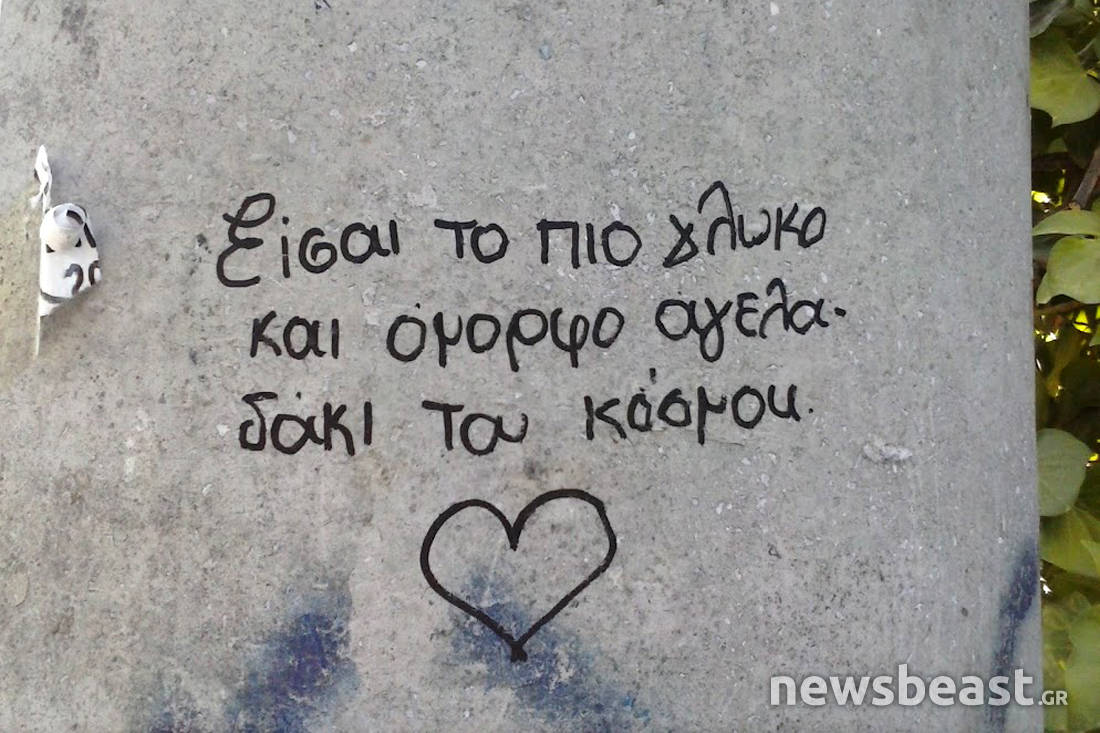 Είσαι το πιο γλωκο
και όμορφο αγελα-
δάκι του κόσμου.
20
newsbeast.GR